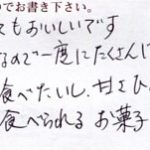 でお書き下さい。
てもおいしいです
なので一度にたくさんに
食べたいし、甘さひ
食べられるお菓子